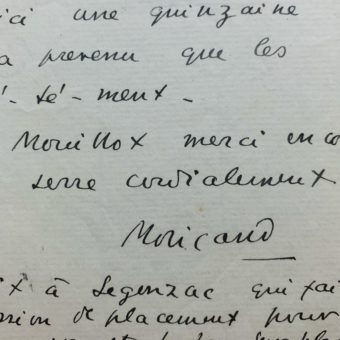 ici une quinzaine
a prevenu que les
- té - ment -
Mouillot merci enco
serre cordialement
Moricand
à Segonzac qui
de placement pour